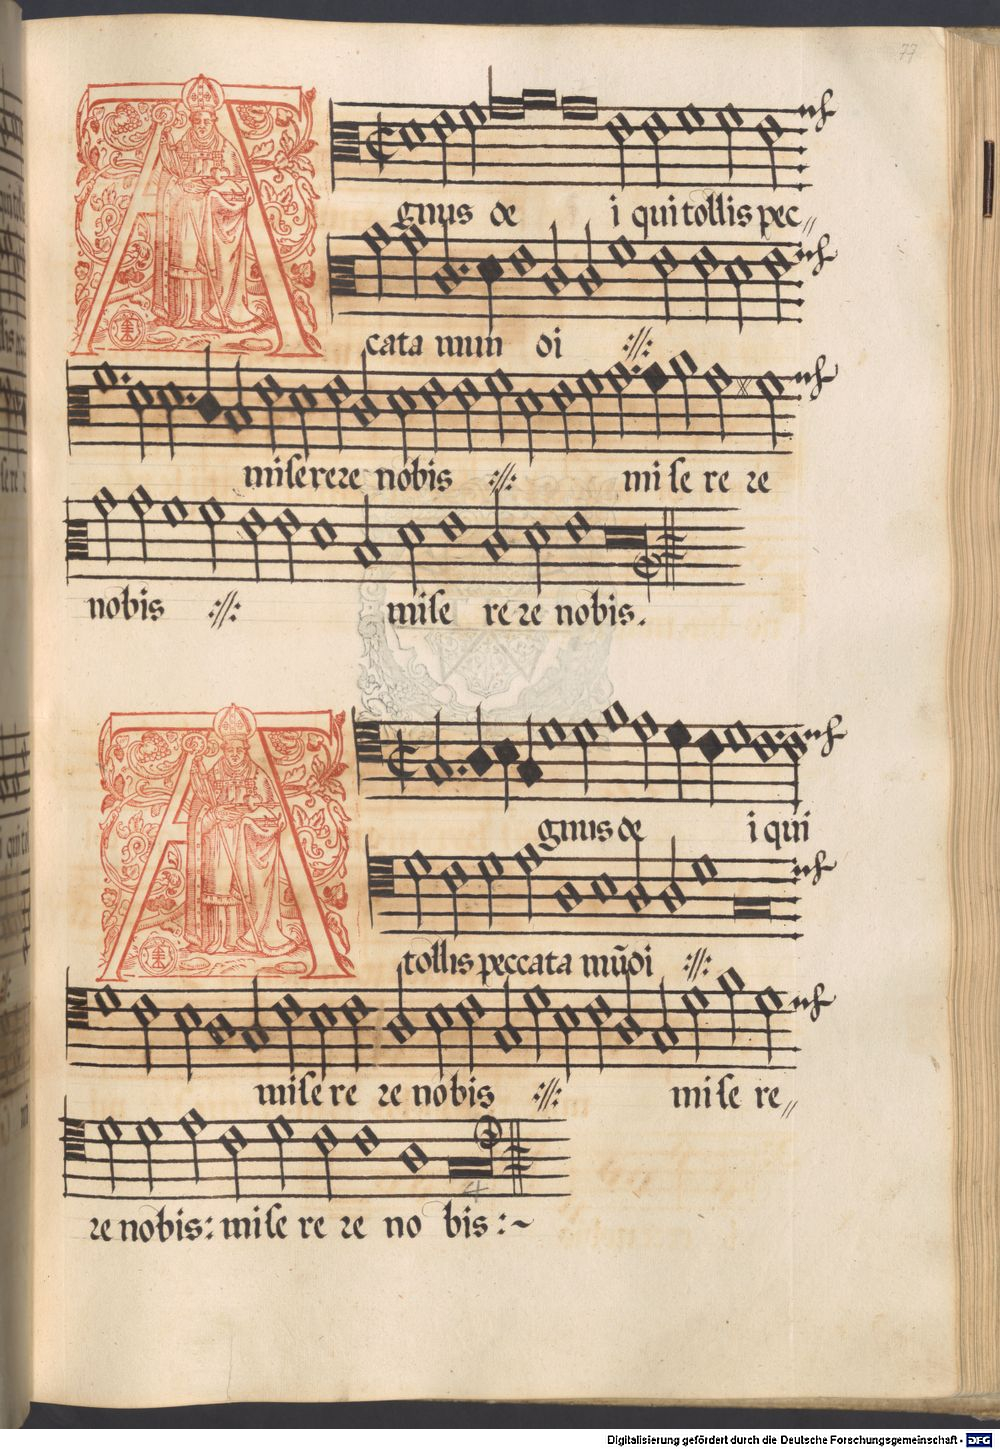 77
Agnus de i i qui tollis pec//
cata mun di :||:
miserere nobis :||: mi se re re
nobis :||: mise re re nobis.
Agnus de i qui
tollis peccata mūdi :||:
mise re re nobis :||: mi se re//
re nobis: mi se re re no bis :~
4
Digitalisierung gefördert durch die Deutsche Forschungsgemeinschaft - DFG